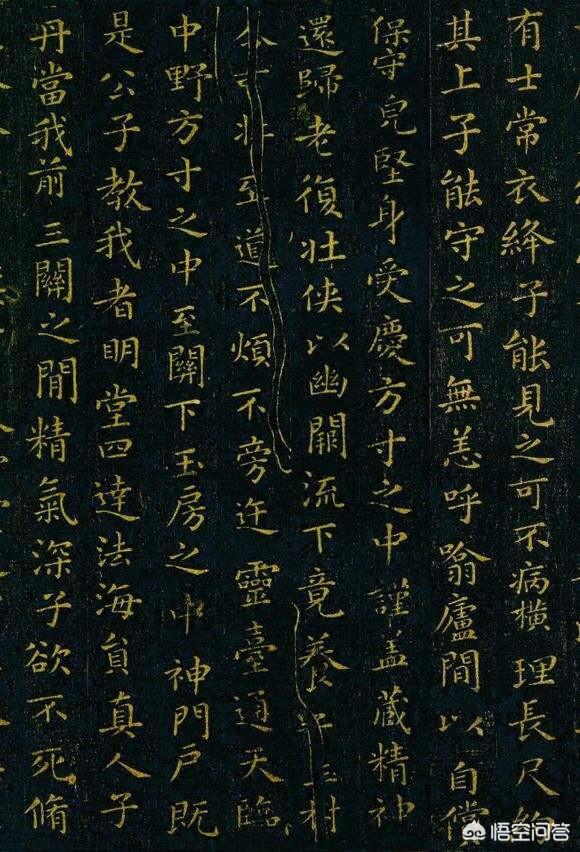 有士常衣絳子能見之可不病橫理長尺約
其上子能守之可無恙呼噏廬間以自償
保守皃堅身受慶方寸之中謹盖藏精神
還歸老復壯俠以幽闕流下竟養村
至道不煩不旁迕靈臺通天臨
中野方寸之中至關下玉房之中神門戶既
是公子教我者明堂四達法海員真人子
丹當我前三關之間精氣深子欲不死脩
悟空问答